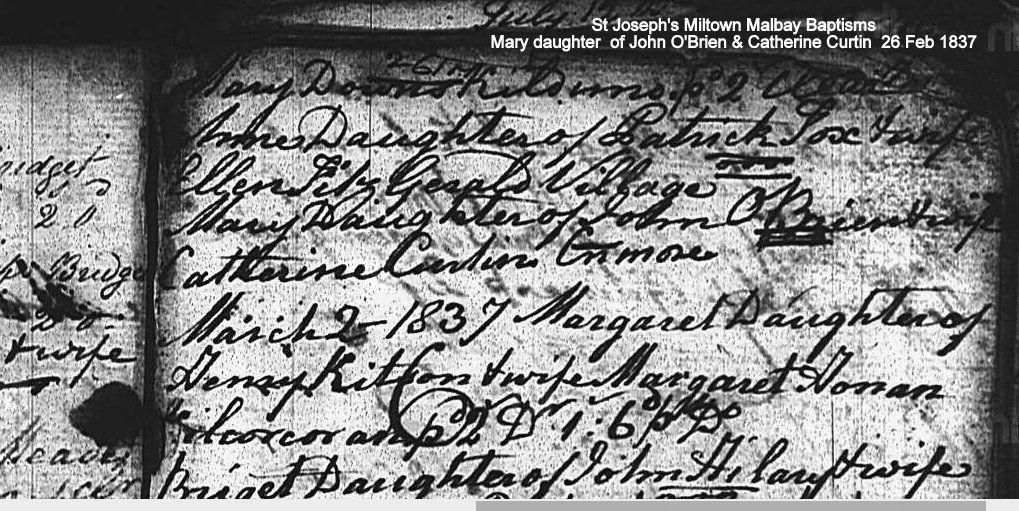 St Joseph's Miltown Malbay Baptisms
Mary daughter of John O'Brien & Catherine Curtin 26 Feb 1837
July
Mary Downs Kildimo p 2
Anne Daughter of Patrick Fox & wife
Ellen Fitz Gerald Village
Mary Daughter of John O Brien & wife
Catherine Curtin Enmore
March 2 - 1837 Margaret Daughter of
Henry Kitson & wife Margaret Honan
Kilcorcoran p 2 D 1 : 6 p
Briget Daughter of John Hilary & wife
ridget
2.0
Bridge
2 0
& wife